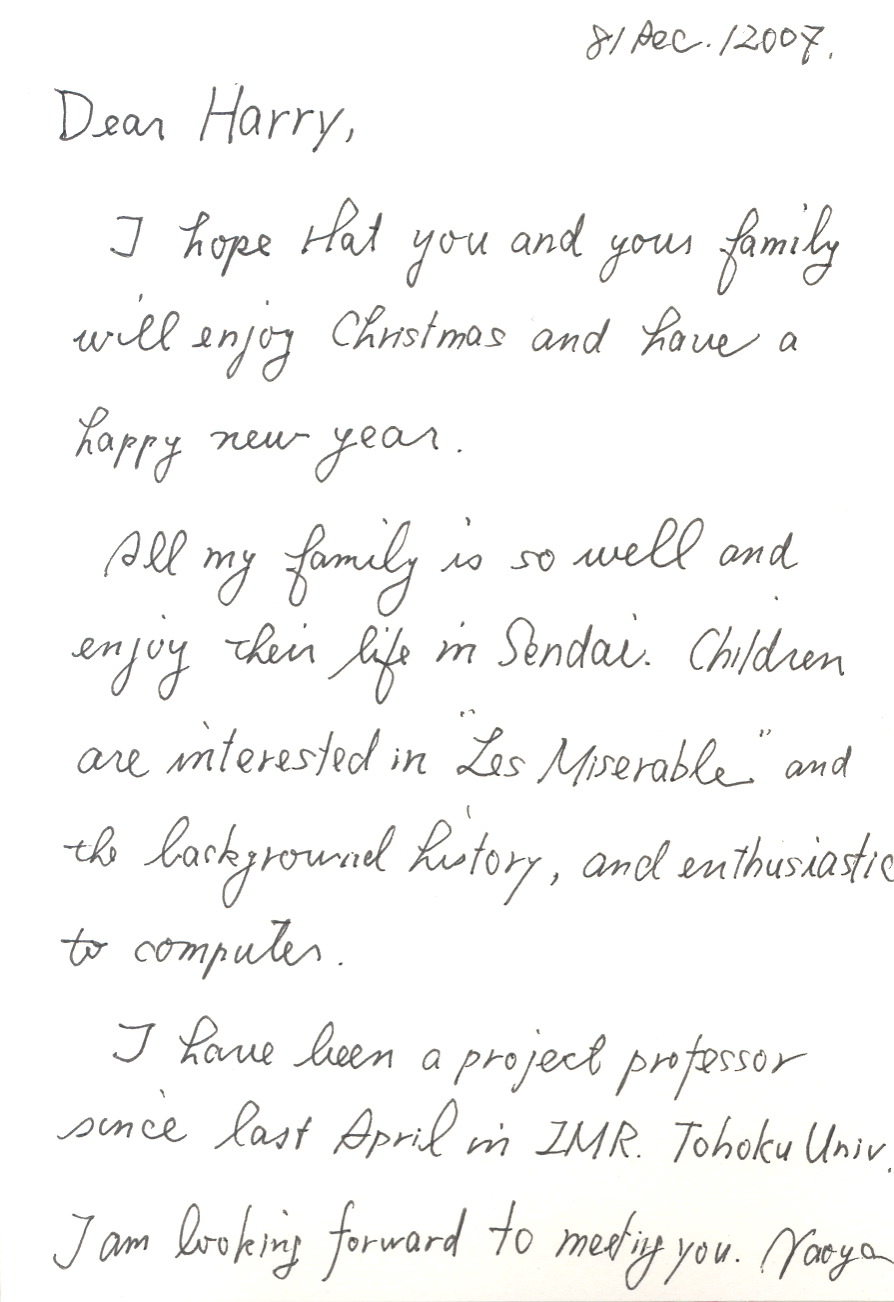 8/Dec./2007.
Dear Harry,
I hope that you and your family
will enjoy Christmas and have a
happy new year.
All my family is so well and
enjoy their life in Sendai. Children
are interested in "Les Miserable" and
the background history, and enthusiastic
to computer.
I have been a project professor
since last April in IMR. Tohoku Univ.
I am looking forward to meeting you. Naoya